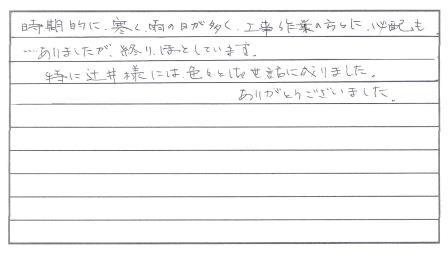 時期的に、寒く、雨の日が多く、工事作業の方々に、心配も
…ありましたが、終り、ほっとしています。
特に辻井様には、色々とお世話になりました。
ありがとうございました。